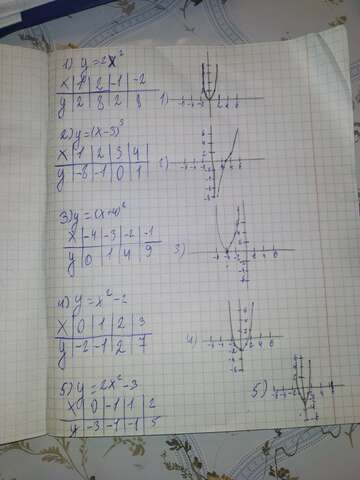 1) y=2x²
x | 1 | 2 | -1 | -2
y | 2 | 8 | 2 | 8
1)
2) y=(x-3)³
x | 1 | 2 | 3 | 4
y | -8 | -1 | 0 | 1
2)
3) y=(x+4)²
x | -4 | -3 | -2 | -1
y | 0 | 1 | 4 | 9
3)
4) y=x²-2
x | 0 | 1 | 2 | 3
y | -2 | -1 | 2 | 7
4)
5) y=2x²-3
x | 0 | -1 | 1 | 2
y | -3 | -1 | -1 | 5
5)